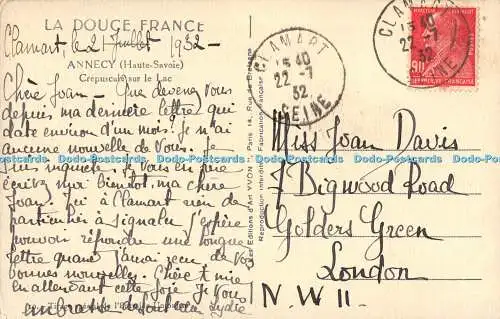 LA DOUCE FRANCE
Clamart le 21 Juillet 1932 -
ANNECY (Haute-Savoie)
Crépuscule sur le Lac
Chère Joan - Que devenez vous
depuis ma dernière lettre qui
date environ d'un mois? Je n'ai
aucune nouvelle de Vous. Je
suis inquiète. Je Vous en prie
écrivez moi bientôt, ma chère
Joan. Ici à Clamart rien de
particulier à signaler j'espère
pouvoir répondre une longue
lettre quand j'aurai reçu de Vs
bonnes nouvelles. Chère t mie
en attendant cette joie Je Vous
embrasse Lydie
Les Editions d'Art YVON, Paris
Reproduction interdite Fabrication Française
CLAMART
15 40
22 -7
32
SEINE
CLAMART
15 40
22 -7
32
SEINE
90
Miss Joan Davis
7 Bigwood Road
Golders Green
London
N.W 11.
Dodo-Postcards Dodo-Postcards Dodo-Postcards Dodo-Postcards Dodo-Postcards